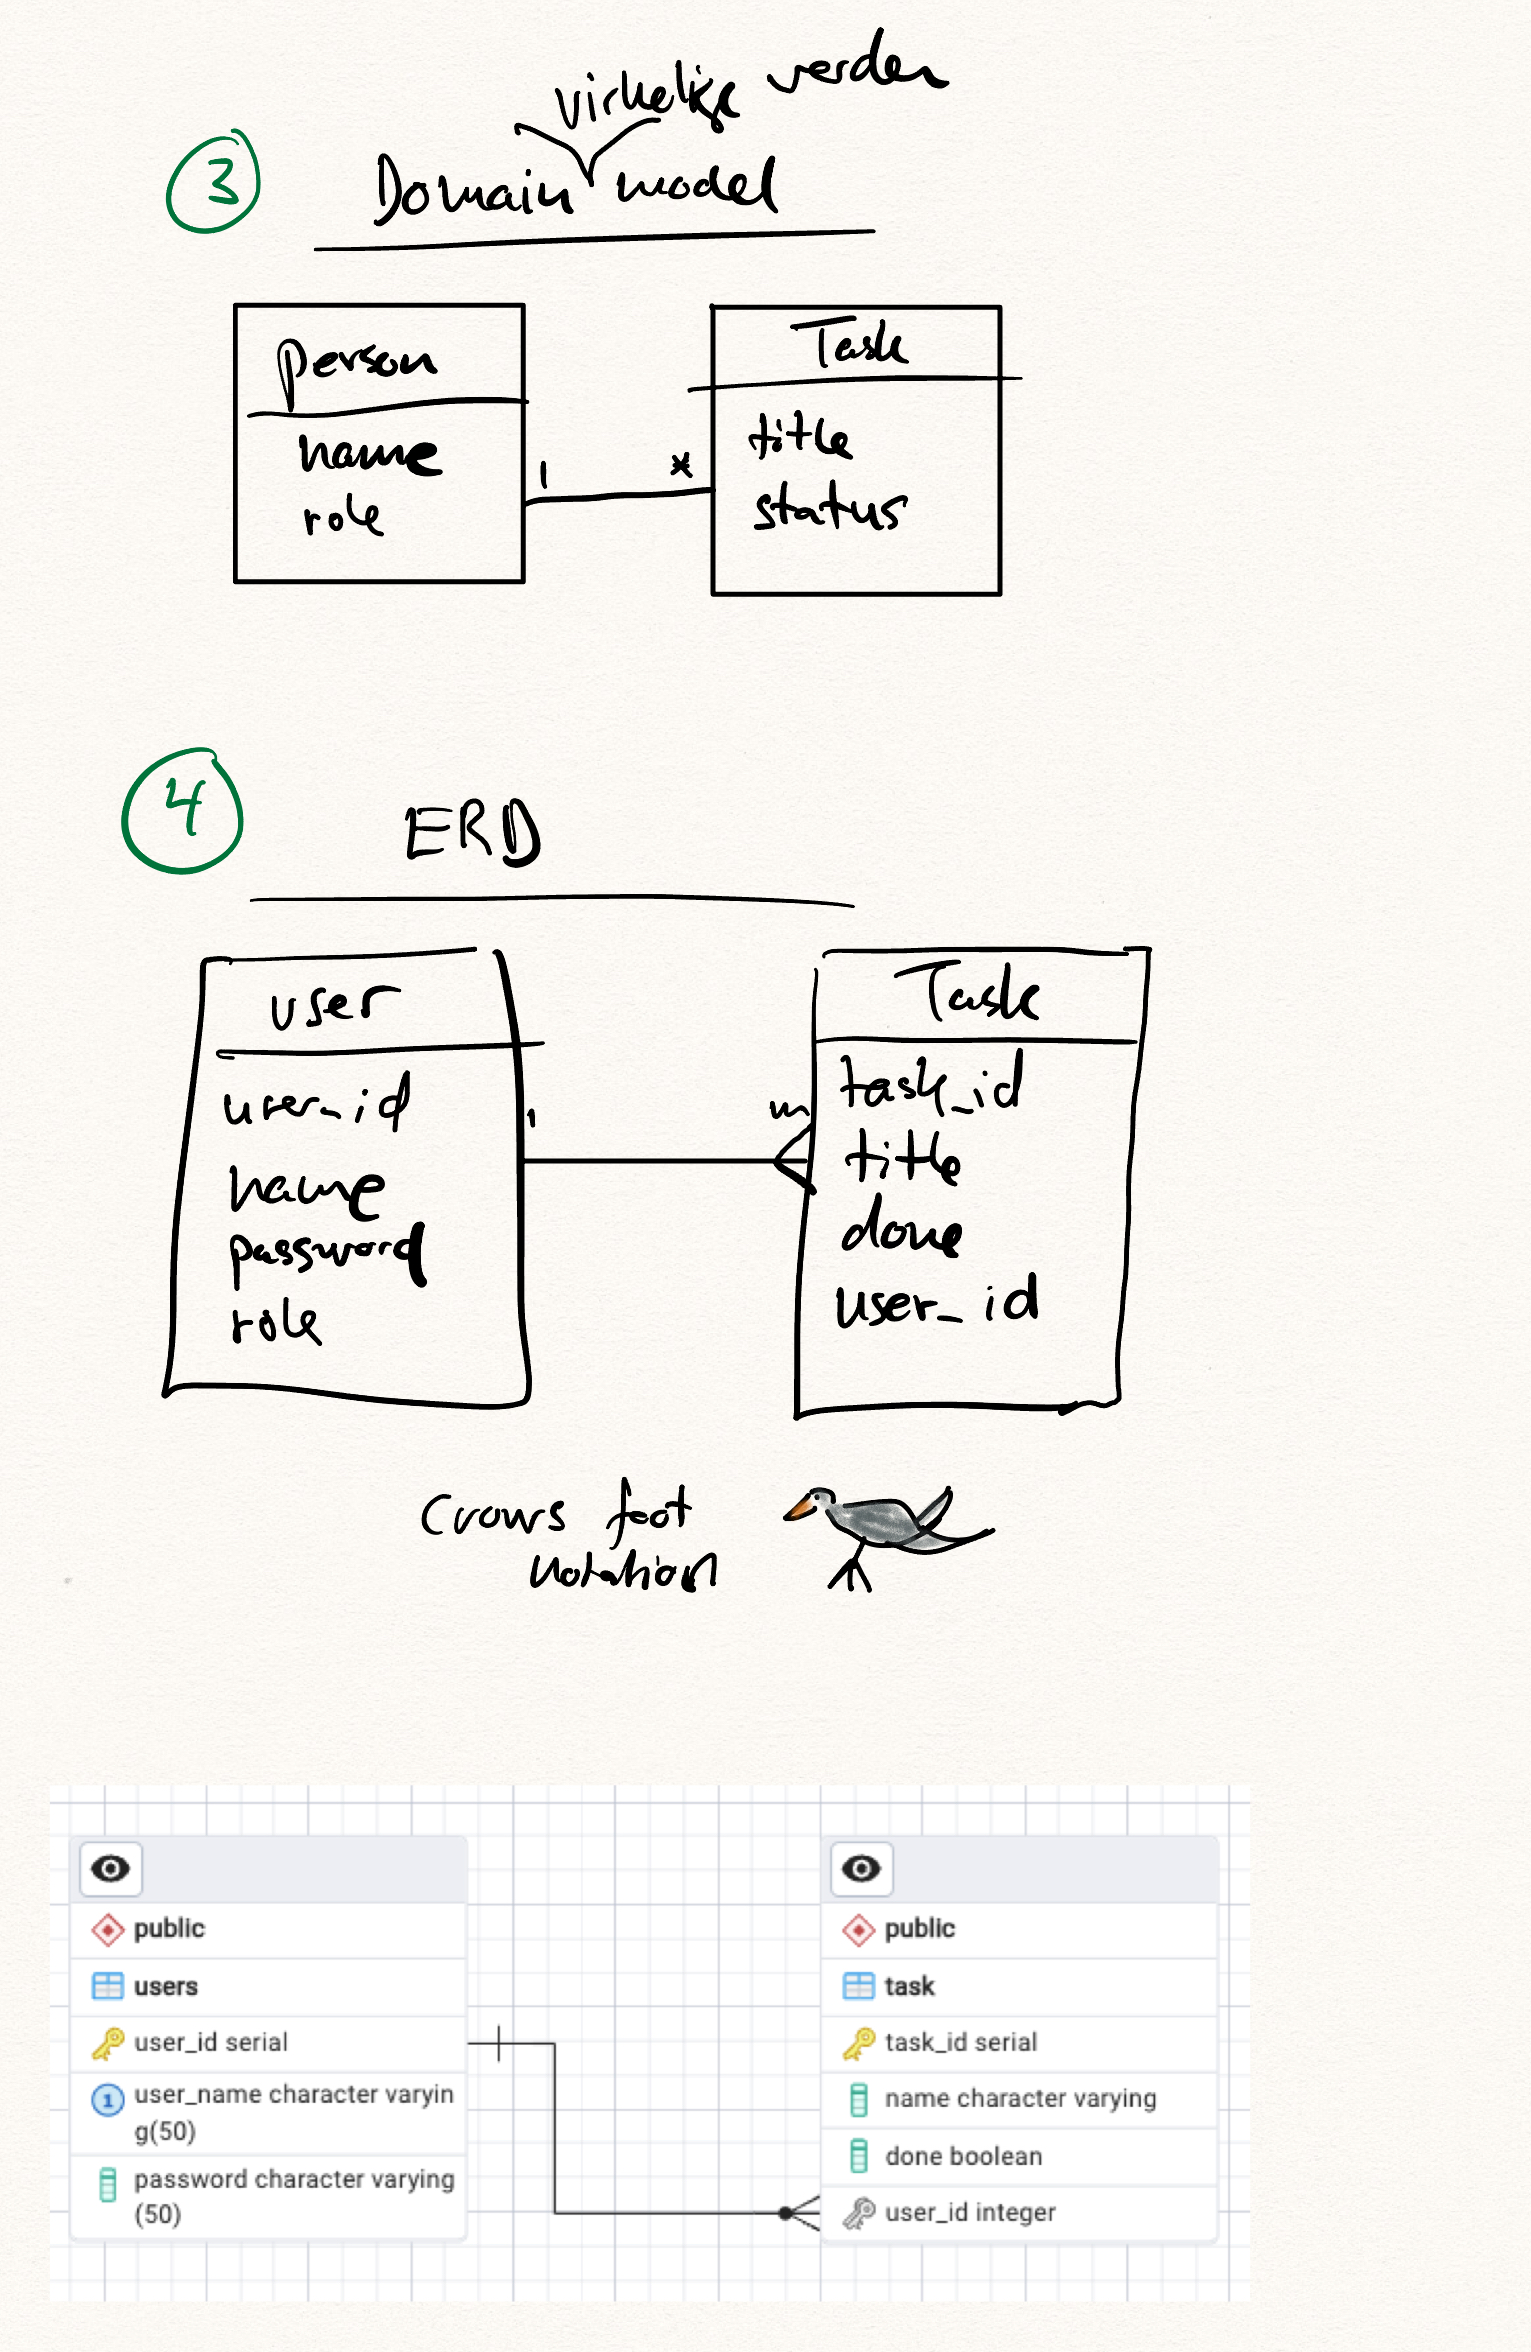 virkelige verden
3
Domain model
person
name
role
1
*
Task
title
status
4
ERD
user
user_id
name
password
role
1
m
Task
task_id
title
done
user_id
Crows foot
notation
public
users
user_id serial
1
user_name character varyin
g(50)
password character varying
(50)
public
task
task_id serial
name character varying
done boolean
user_id integer